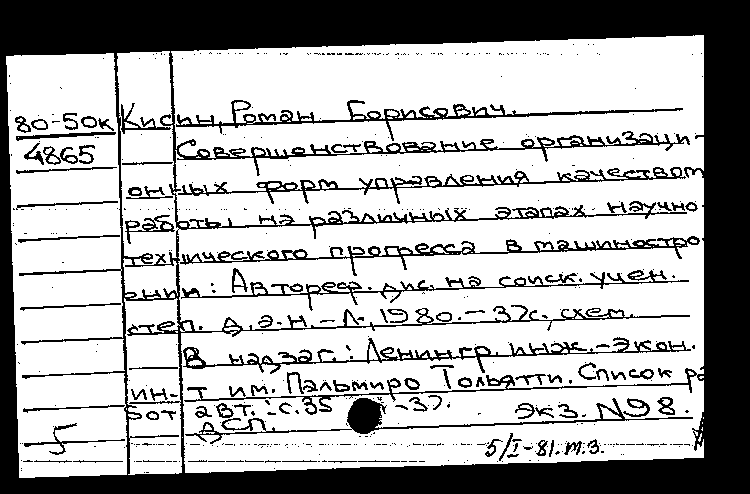 80-50к Кисин, Роман Борисович.
4865 Совершенствование организаци-
онных форм управления качеством
работы на различных этапах научно-
технического прогресса в машиностро-
ении: Автореф. дис. на соиск. учен.
степ. д.э.н. - Л., 1980. - 37с., схем.
В надзаг.: Ленингр. инж.-экон.
ин-т им. Пальмиро Тольятти. Список ра
бот авт.: с.35 -37.
ДСП. Экз. №98.
5
5/I-81.т.3.